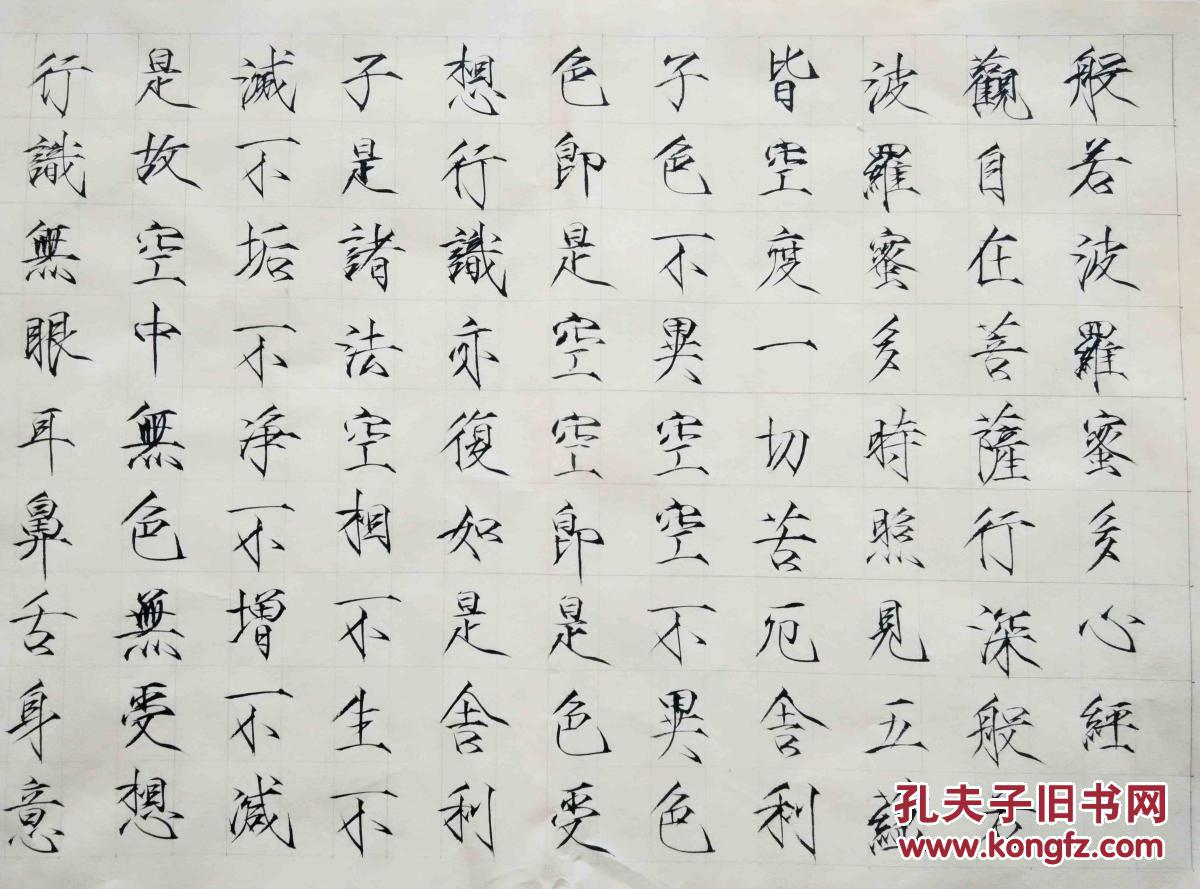 般若波羅蜜多心經
觀自在菩薩行深般若
波羅蜜多時照見五蘊
皆空度一切苦厄舍利
子色不異空空不異色
色即是空空即是色受
想行識亦復如是舍利
子是諸法空相不生不
滅不垢不淨不增不減
是故空中無色無受想
行識無眼耳鼻舌身意
孔夫子旧书网
www.kongfz.com